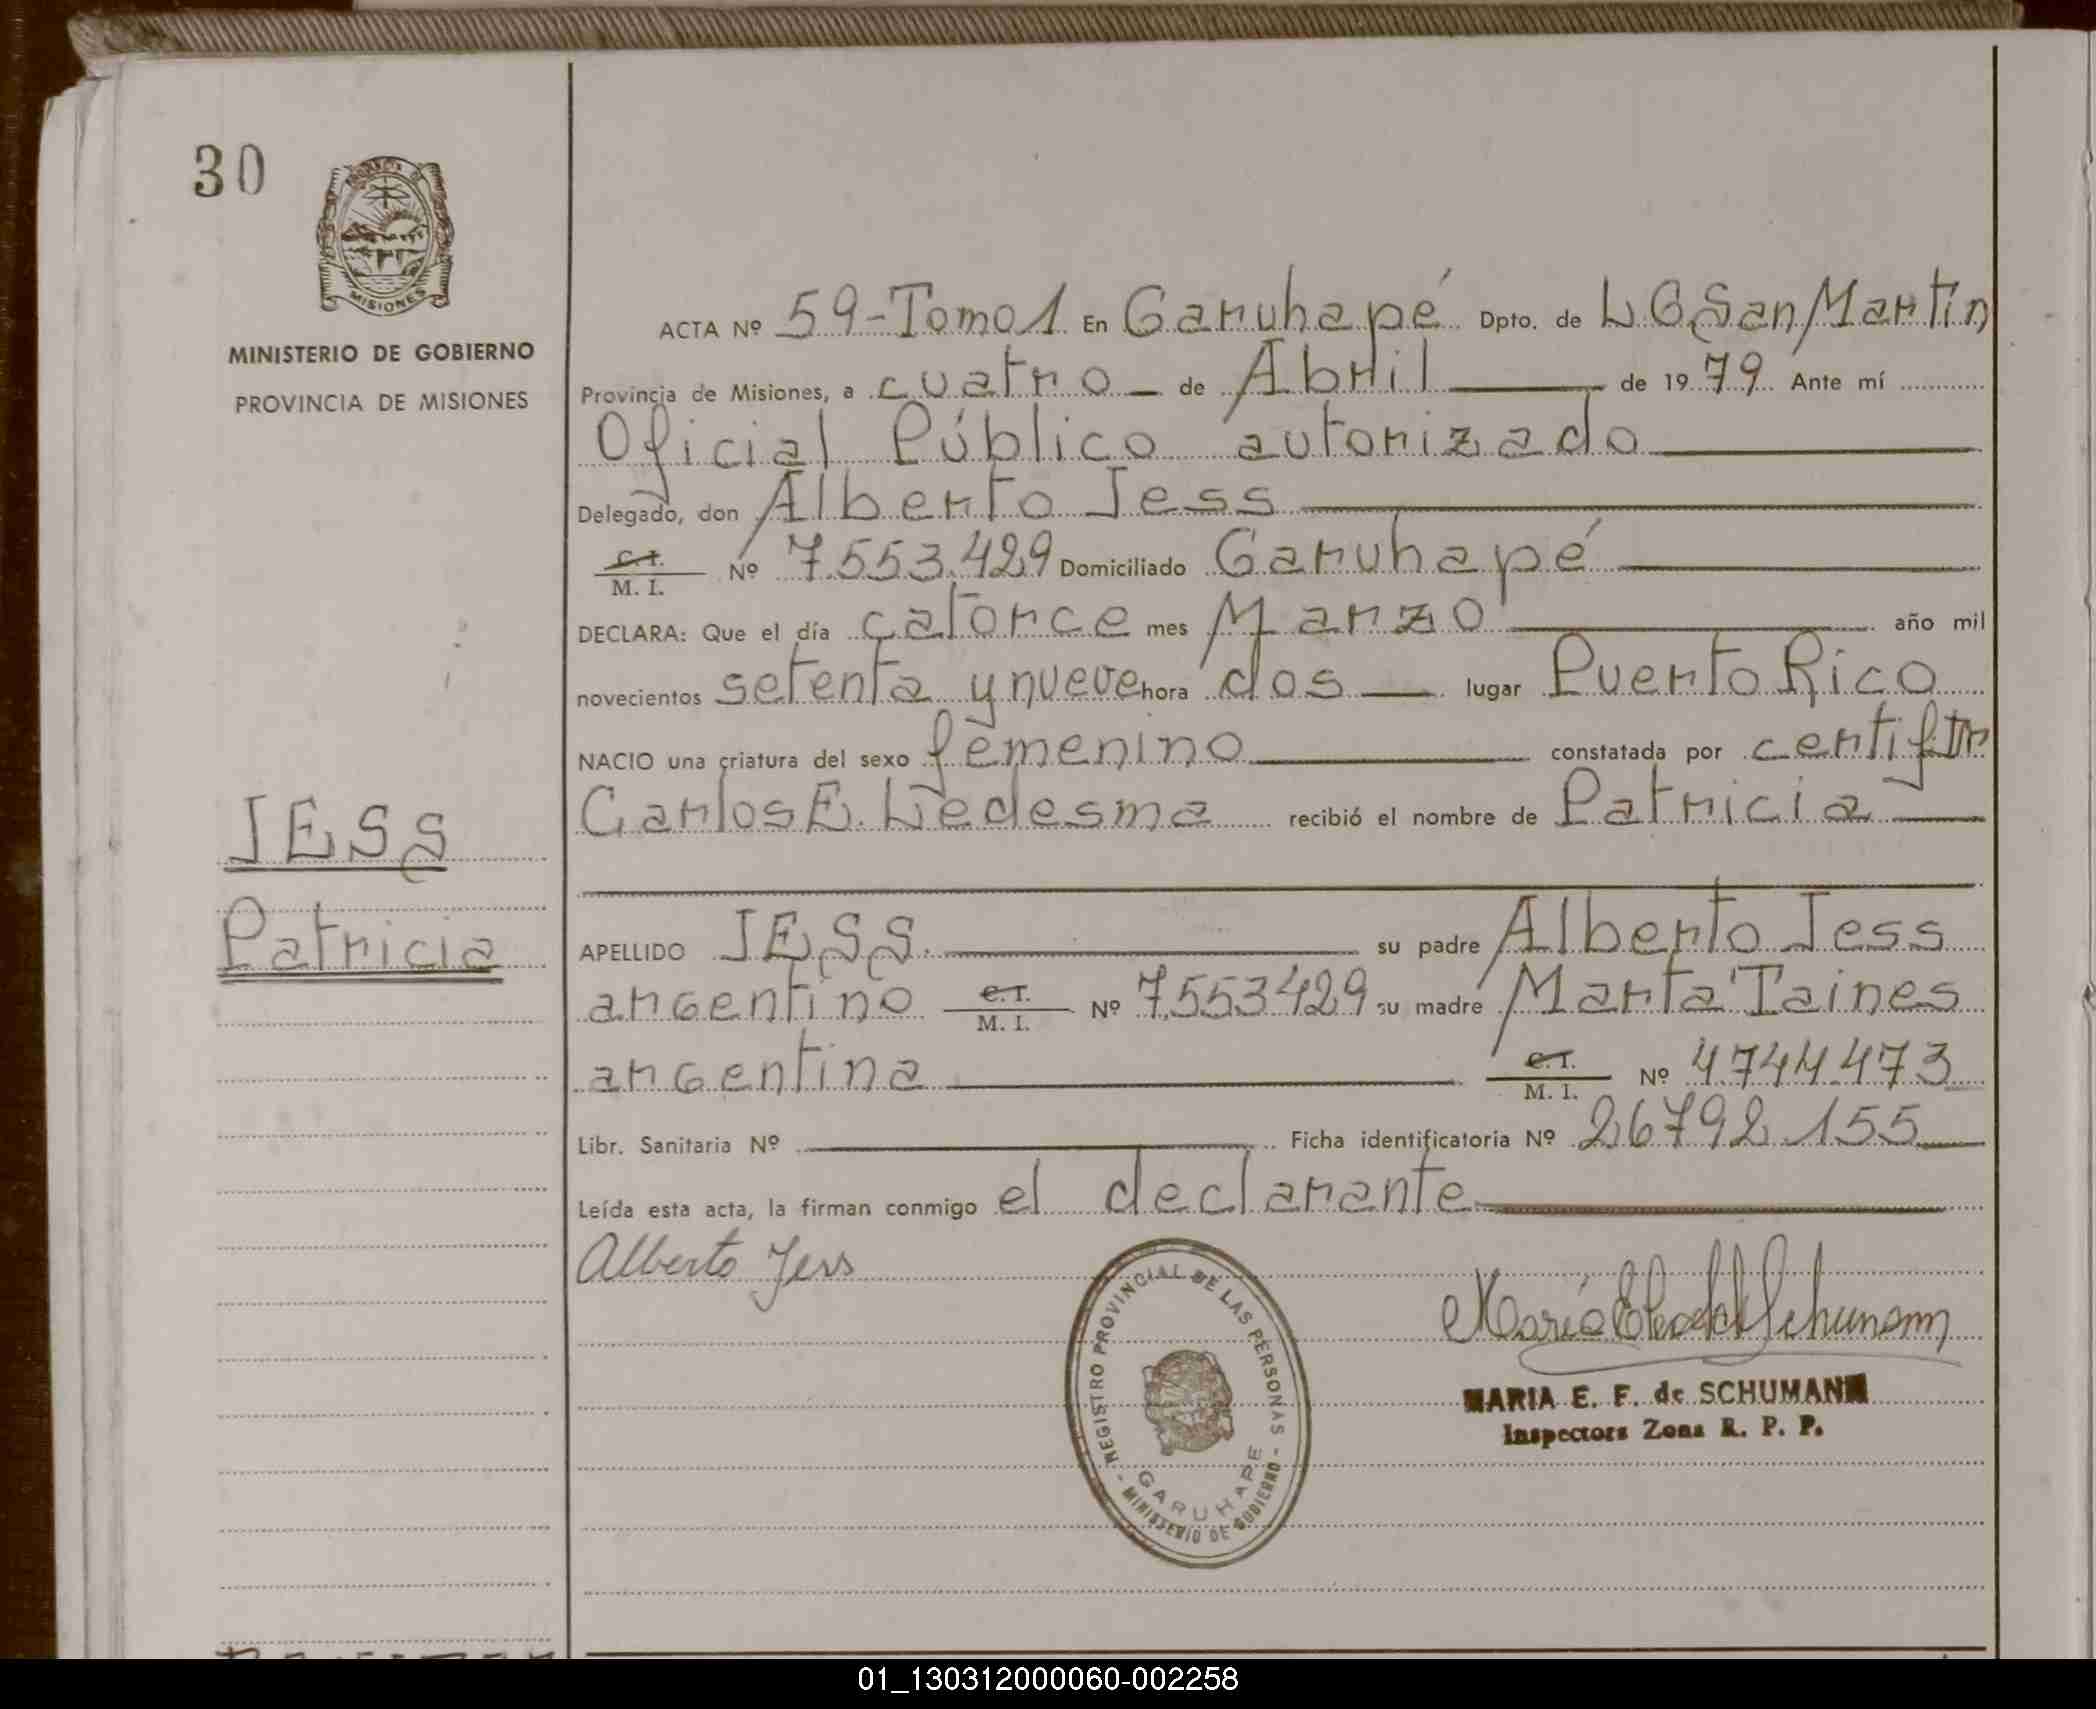 30
PROVINCIA DE
MISIONES
MINISTERIO DE GOBIERNO
PROVINCIA DE MISIONES
JESS
Patricia
ACTA Nº 59-Tomo1 En Garuhapé Dpto. de L G San Martín
Provincia de Misiones, a cuatro de Abril de 1979 Ante mí
Oficial Público autorizado
Delegado, don Alberto Jess
C.I.
M. I. Nº 7.553.429 Domiciliado Garuhapé
DECLARA: Que el día catorce mes Marzo año mil
novecientos setenta y nueve hora dos lugar Puerto Rico
NACIO una criatura del sexo femenino constatada por
Carlos E. Ledesma recibió el nombre de Patricia
APELLIDO JESS. su padre Alberto Jess
argentino C.I. M. I. Nº 7.553.429 su madre Marta Taines
argentina C.I. M. I. Nº 4.744.473
Libr. Sanitaria Nº Ficha identificatoria Nº 26.792.155
Leída esta acta, la firman conmigo el declarante
Alberto Jess
REGISTRO PROVINCIAL DE LAS PERSONAS
GARUHAPE
MINISTERIO DE GOBIERNO
MARIA E. F. de SCHUMANN
Inspectora Zona R. P. P.
01_130312000060-002258